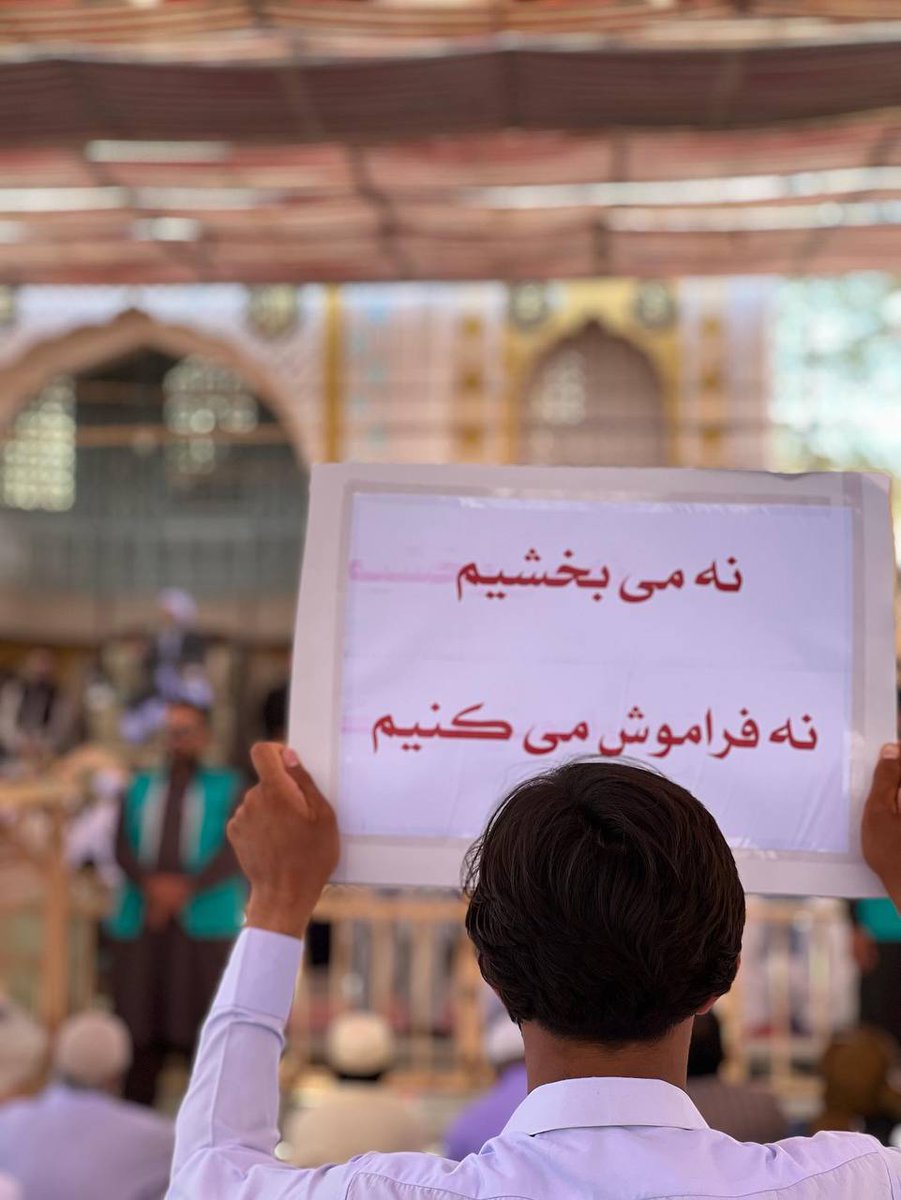 نه می بخشیم
نه فراموش می کنیم